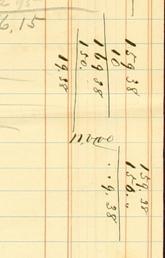 6,15
159 38
10
169 38
150.
19.38
159.38
150 "
. . 9.38